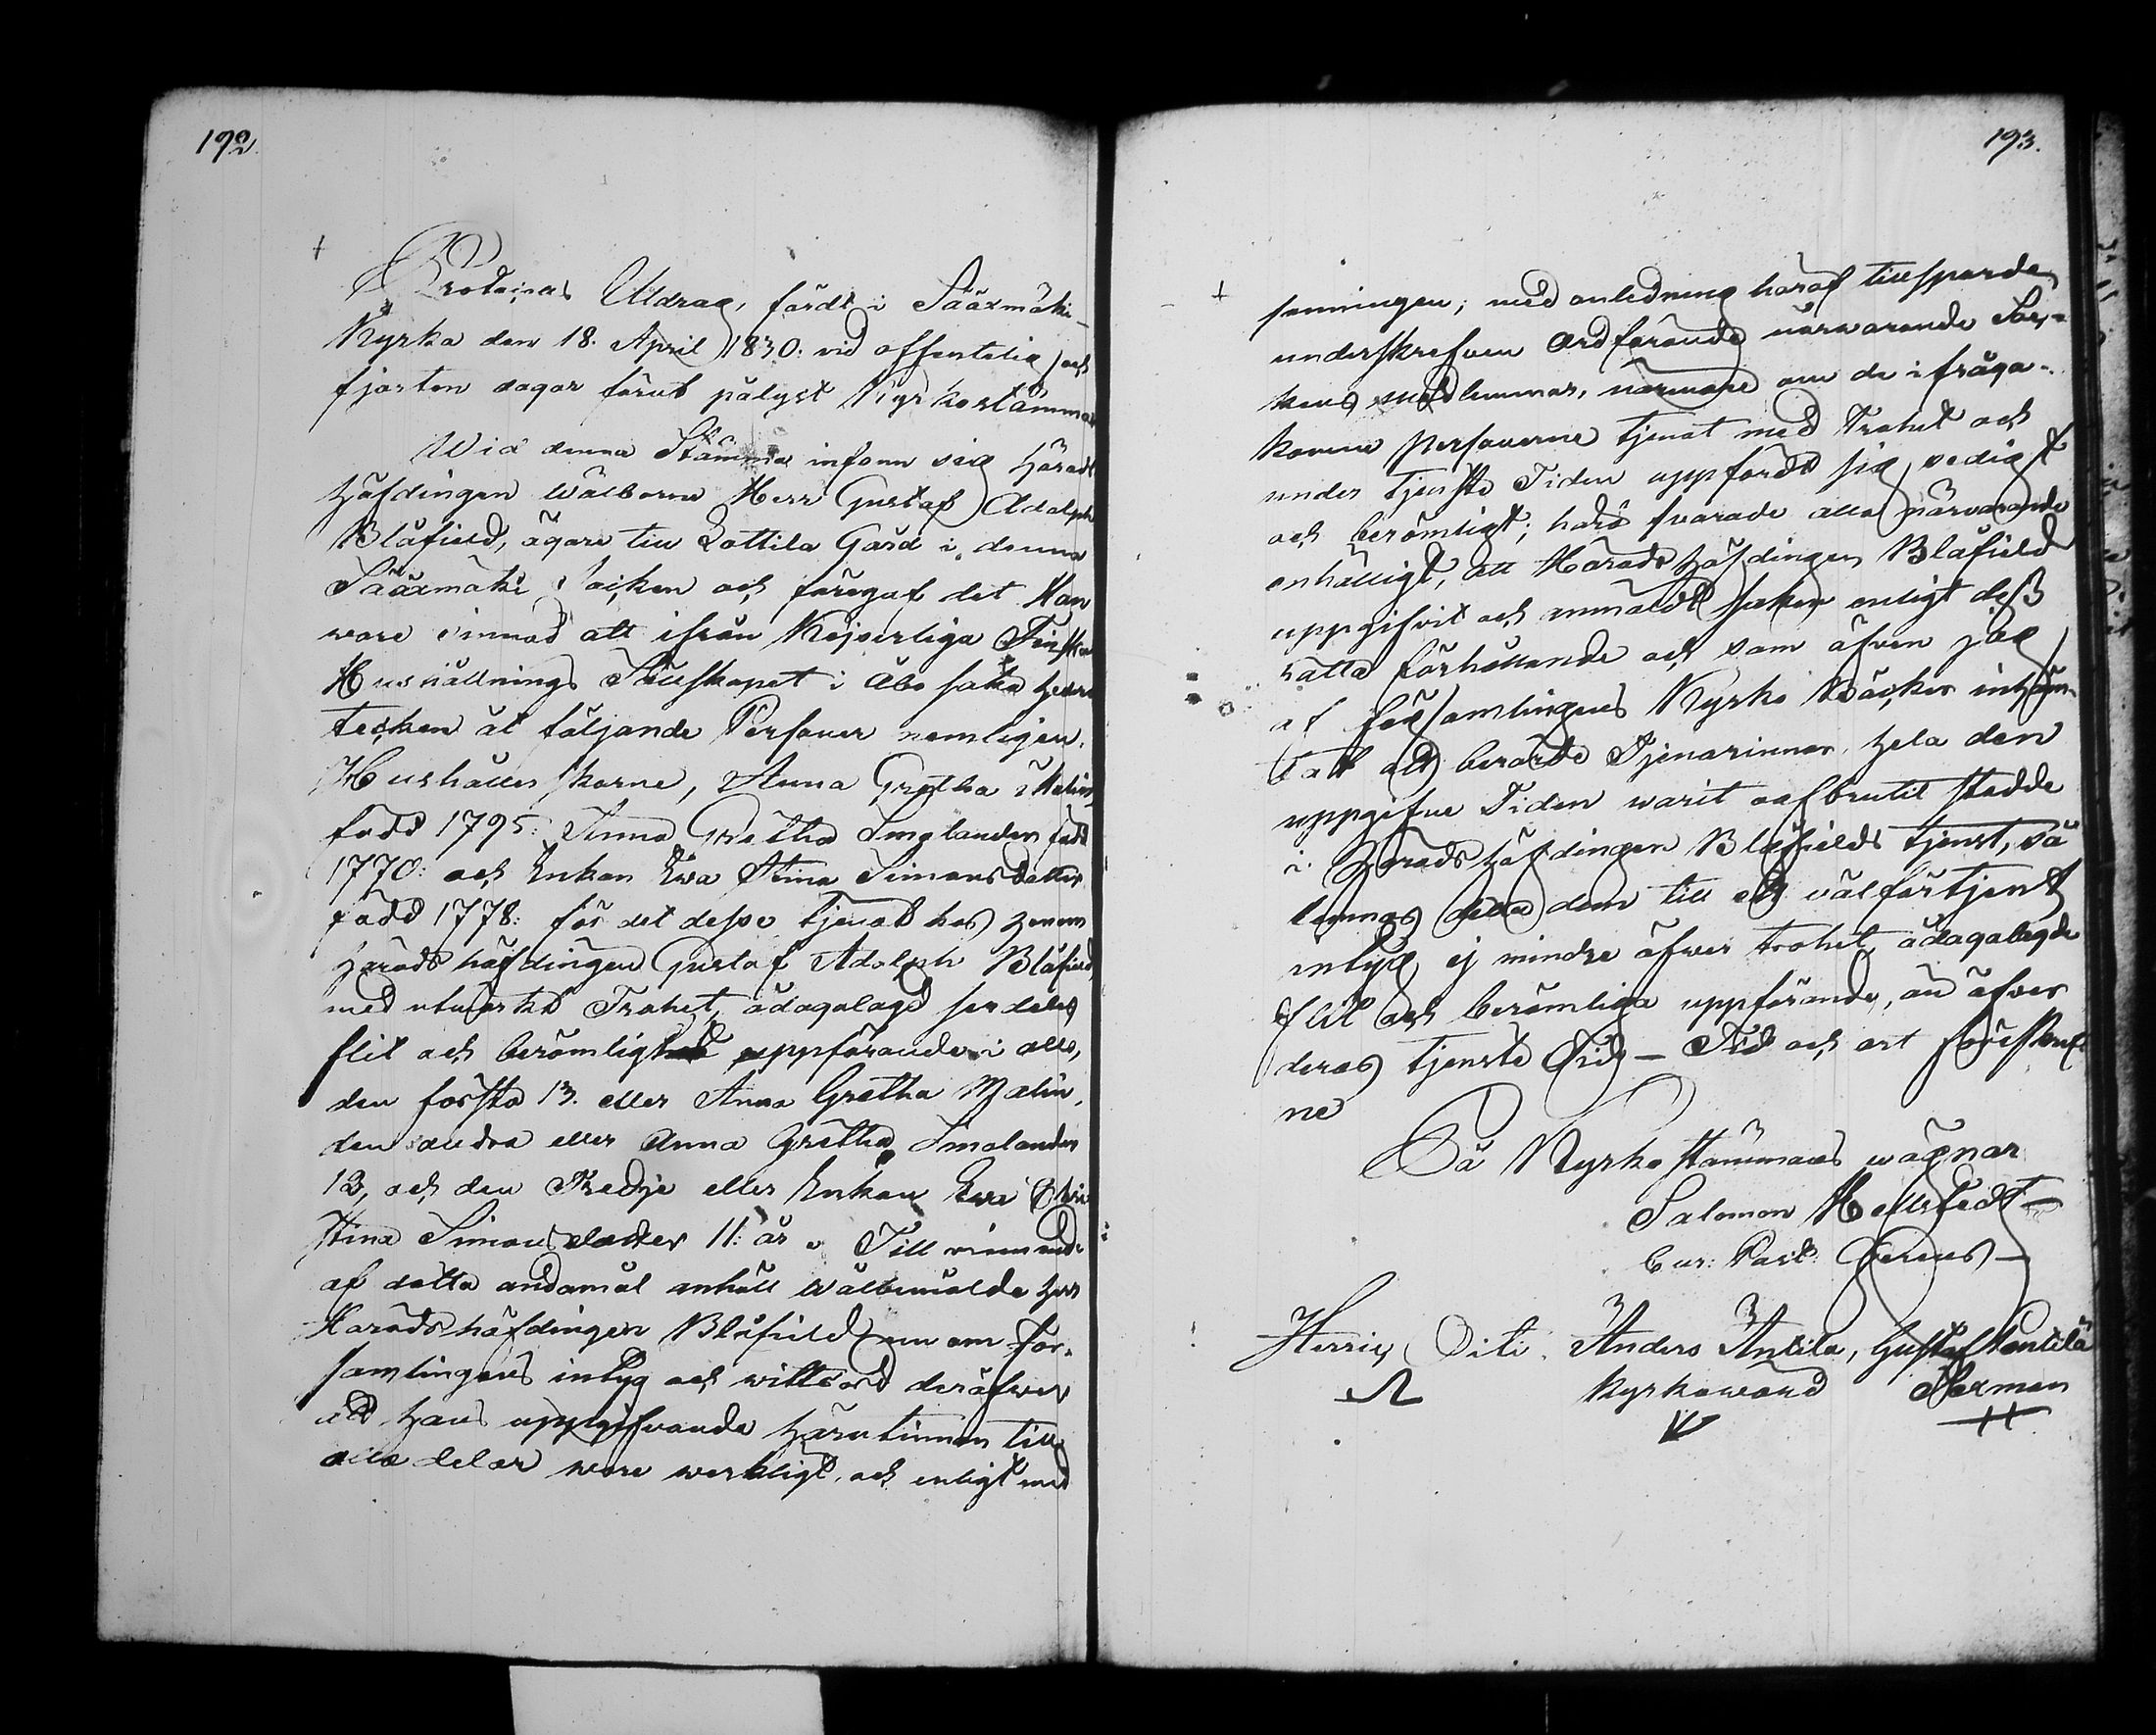 192.
Protocols Utdrag, fördt i Sääxmäki
Kyrka den 18. April 1830: vid offentelig och
fjorton dagar förut pålyst Kyrkostämma
Wid denna Stämma infann sig Härads
Höfdingen Wälborne Herr Gustaf Adolph
Blåfield, ägare till Lottila Gård i denna
Sääxmäki Socken och föregaf det Han
wore sinnad att ifrån Kejserliga Finska
Hushållnings Sällskapet i Åbo söka heders
tecken åt följande Personer nemligen.
Hushållerskorne, Anna Gretha Malin
född 1795: Anna Gretha Smolander född
1770: och Enkan Ewa Stina Simonsdotter
född 1778: för det desse tjenat hos honom
Häradshöfdingen Gustaf Adolph Blåfield,
med utmärkt Trohet, ådagalagd serdeles
flit och berömligt uppförande i alle,
den första 13. eller Anna Gretha Malin,
den andra eller Anna Gretha Smolander
12, och den Tredje eller Enkan Ewa
Stina Simonsdotter 11: år. Till winnande
af detta ändamål anhöll Wälbemälde Herr
Häradshöfdingen Blåfield nu om För-
samlingens intyg och wittsord deröfwer
att hans uppgifvande härutinnan till
alla delar wore werkligt, och enligt med
193.
sanningen; med anledning häraf tillsporde
underskrefven Ordförande närwarande Soc-
kens medlemmar, närmare om de ifråga-
komne Personerne tjenat med Trohet och
under tjenste Tiden uppfördt sig sedigt
och berömligt; härå svarade alla närvarande
enhälligt, att Härads Höfdingen Blåfield
uppgifvit och anmäldt saken enligt dess
rätta förhållande och som äfven jag
af församlingens Kyrko Böcker inhäm-
tat att berörde Tjenarinnor hela den
uppgifne Tiden warit oafbrutit stadde
i Härads Höfdingen Blåfields tjenst, så
lemnas detta dem till ett välförtjent
intyg ej mindre öfwer trohet, ådagalagde
flit och berömliga uppförande, än öfver
deras tjenste Tid – Tid och ort föreskref-
ne
På Kyrko stämmans wägnar
Salomon Hellstedt
Cur: Past: Gerens –
Herric, Oiti. Anders Antila, Gustaf Kantila
Kyrkoward Sexman